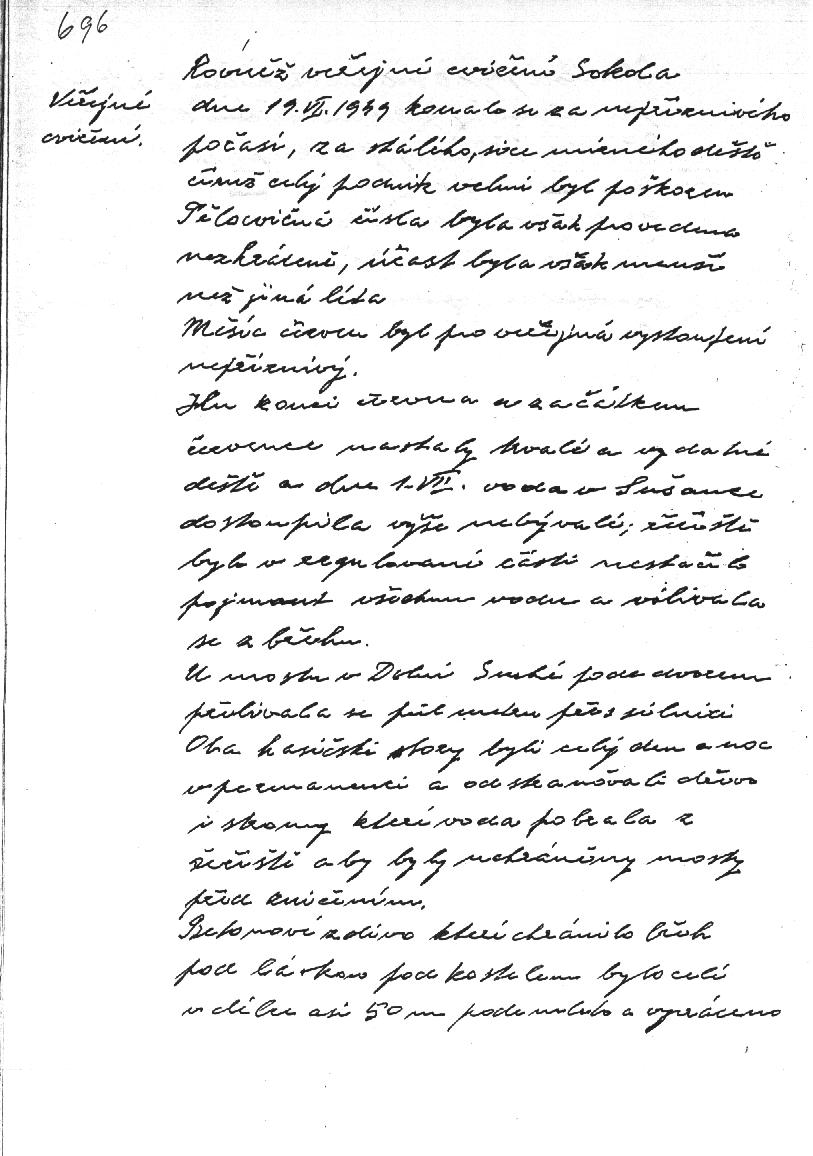 696
Veřejné
cvičení.
Rovněž veřejné cvičení Sokola
dne 19.VI.1949 konalo se za nepříznivého
počasí, za stálého, sice mírného deště
čímž celý podnik velmi byl poškozen
Tělocvičná čísla byla však provedena
nezkráceně, účast byla však menší
než jiná léta
Měsíc červen byl pro veřejná vystoupení
nepříznivý.
Ku konci června a začátkem
července nastaly trvalé a vydatné
deště a dne 1.VII. voda v Sušance
dostoupila výše nebývalé; řečiště
bylo v regulované části nestačilo
pojmout všechnu vodu a vylívala
se z břehu.
U mostu v Dolní Suché pode dvorem
přelívala se půl metru přes silnici
Oba hasičské sbory byli celý den a noc
v permanenci a odstraňovali dřevo
i stromy které voda pobrala z
řečiště aby byly uchráněny mosty
před zničením.
Betonové zdivo které chránilo břeh
pod lávkou pod kostelem bylo celé
v délce asi 50 m podemleto a vyvráceno